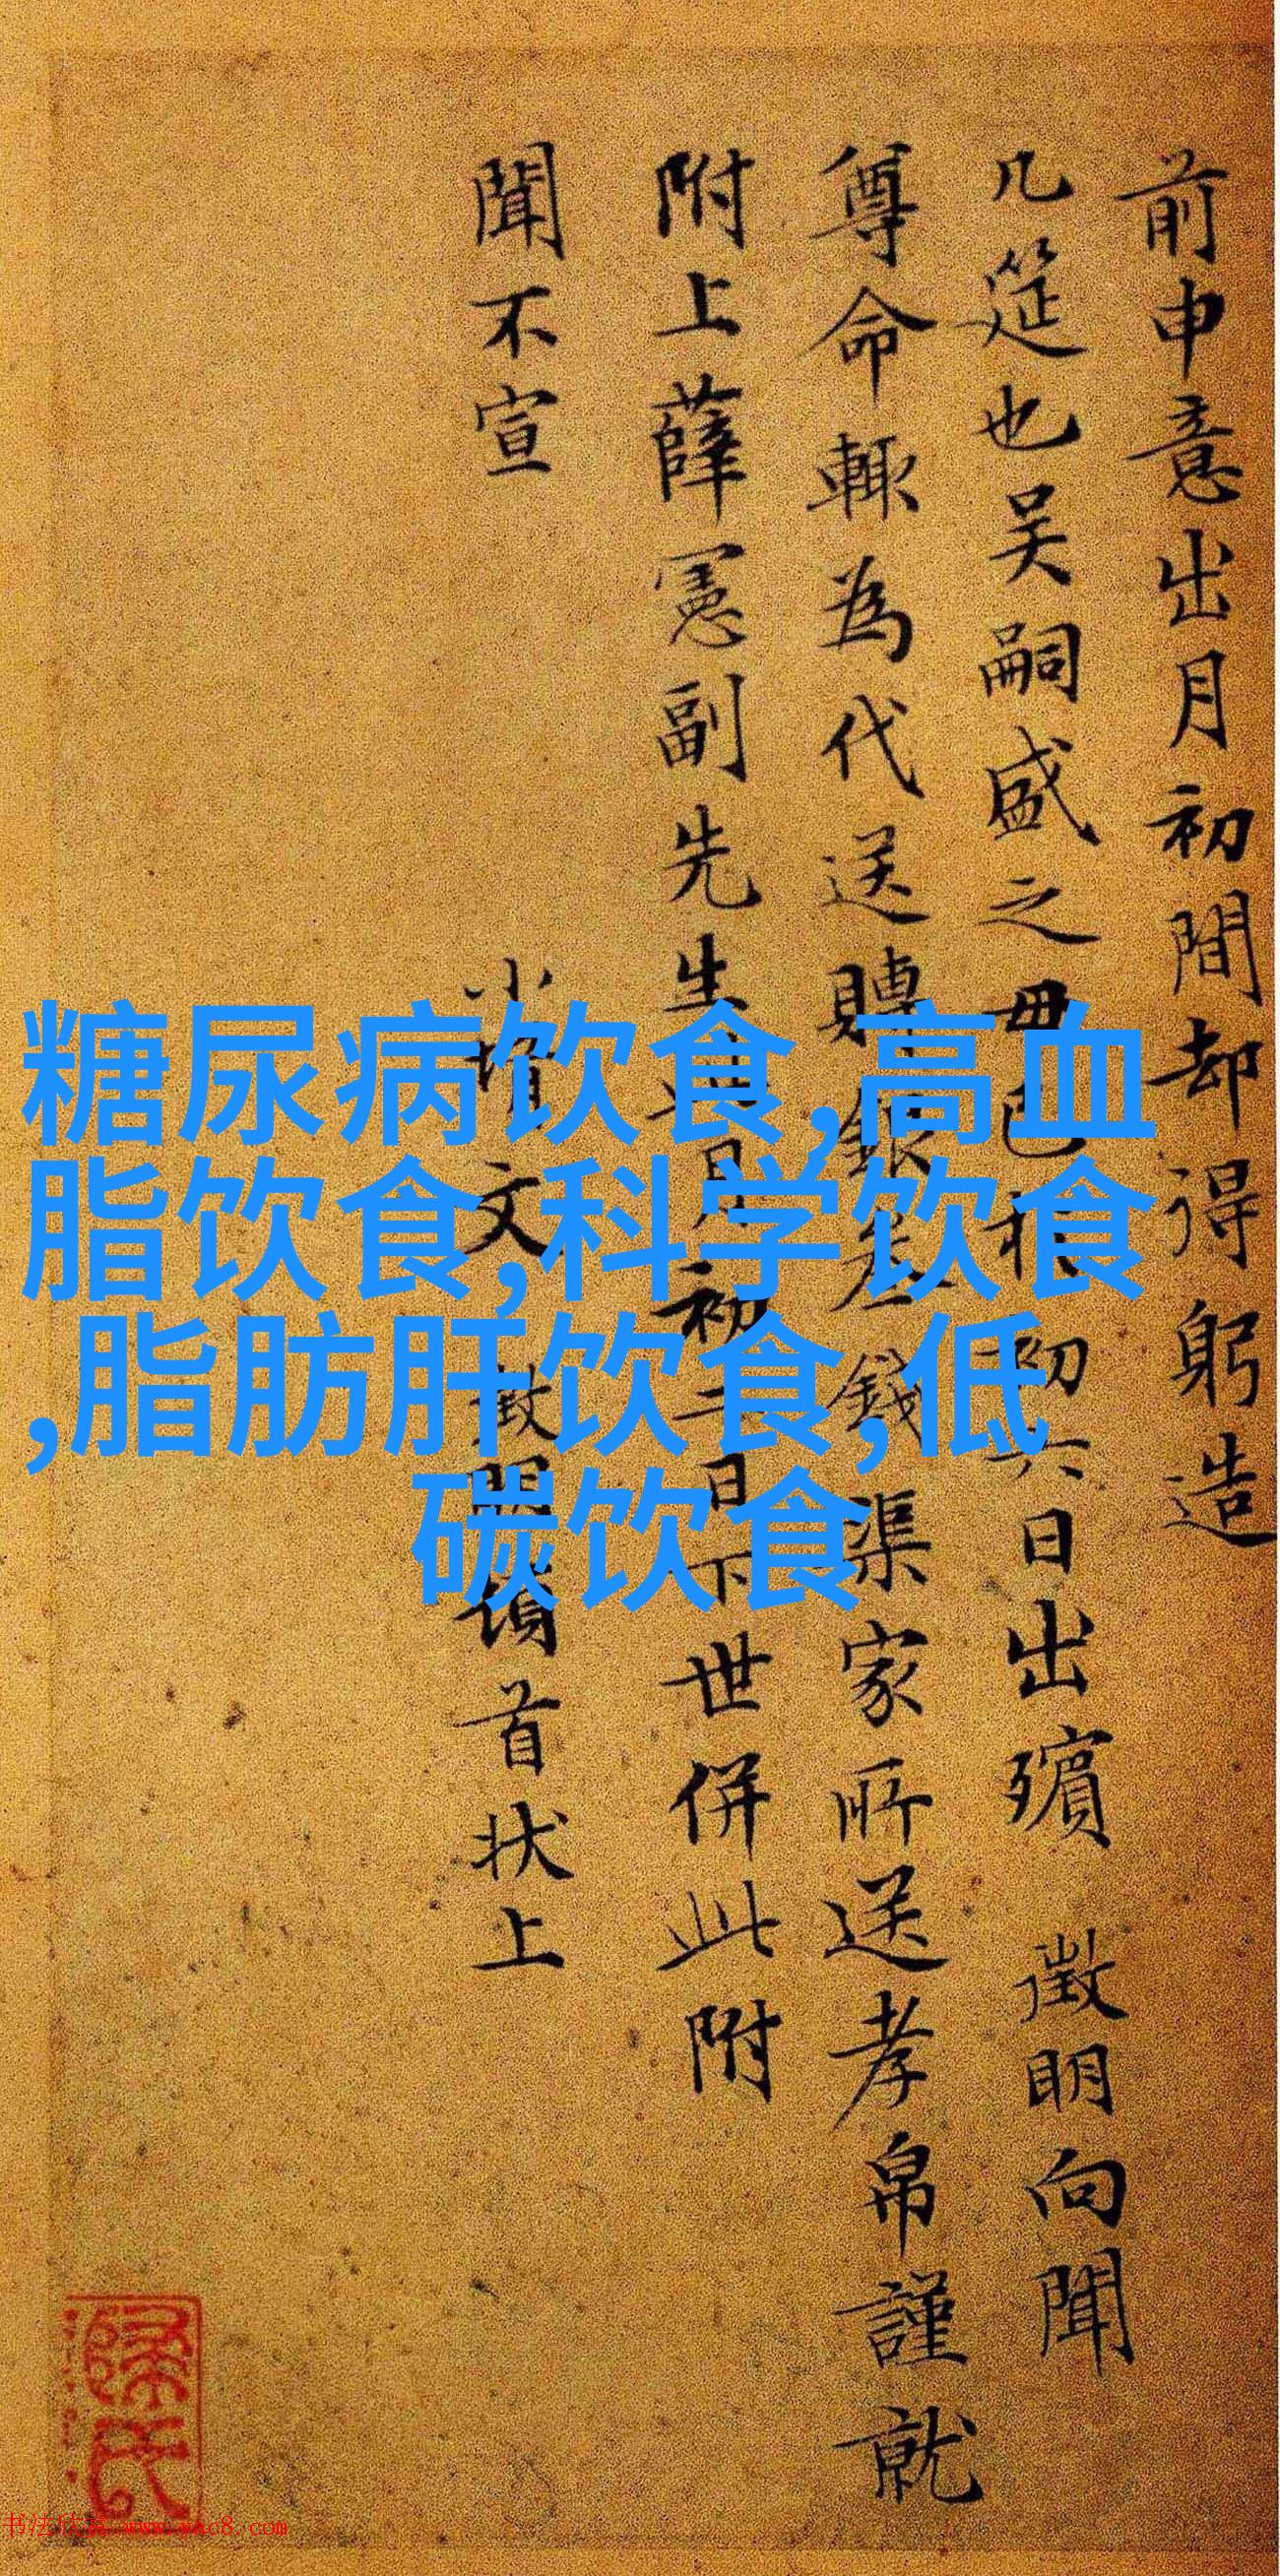 前申意出月初間却得躬造
几筵也吴嗣盛之毋已於初六日出殯 徵明向聞
尊命輙為代送賻銀叁錢渠家所送孝帛謹就
附上薛憲副先生初二日下世併此附
聞不宣
小壻文徵明頓首狀上
糖尿病饮食,高血
脂饮食,科学饮食
,脂肪肝饮食,低
碳饮食
书法欣赏 www.yac8.com